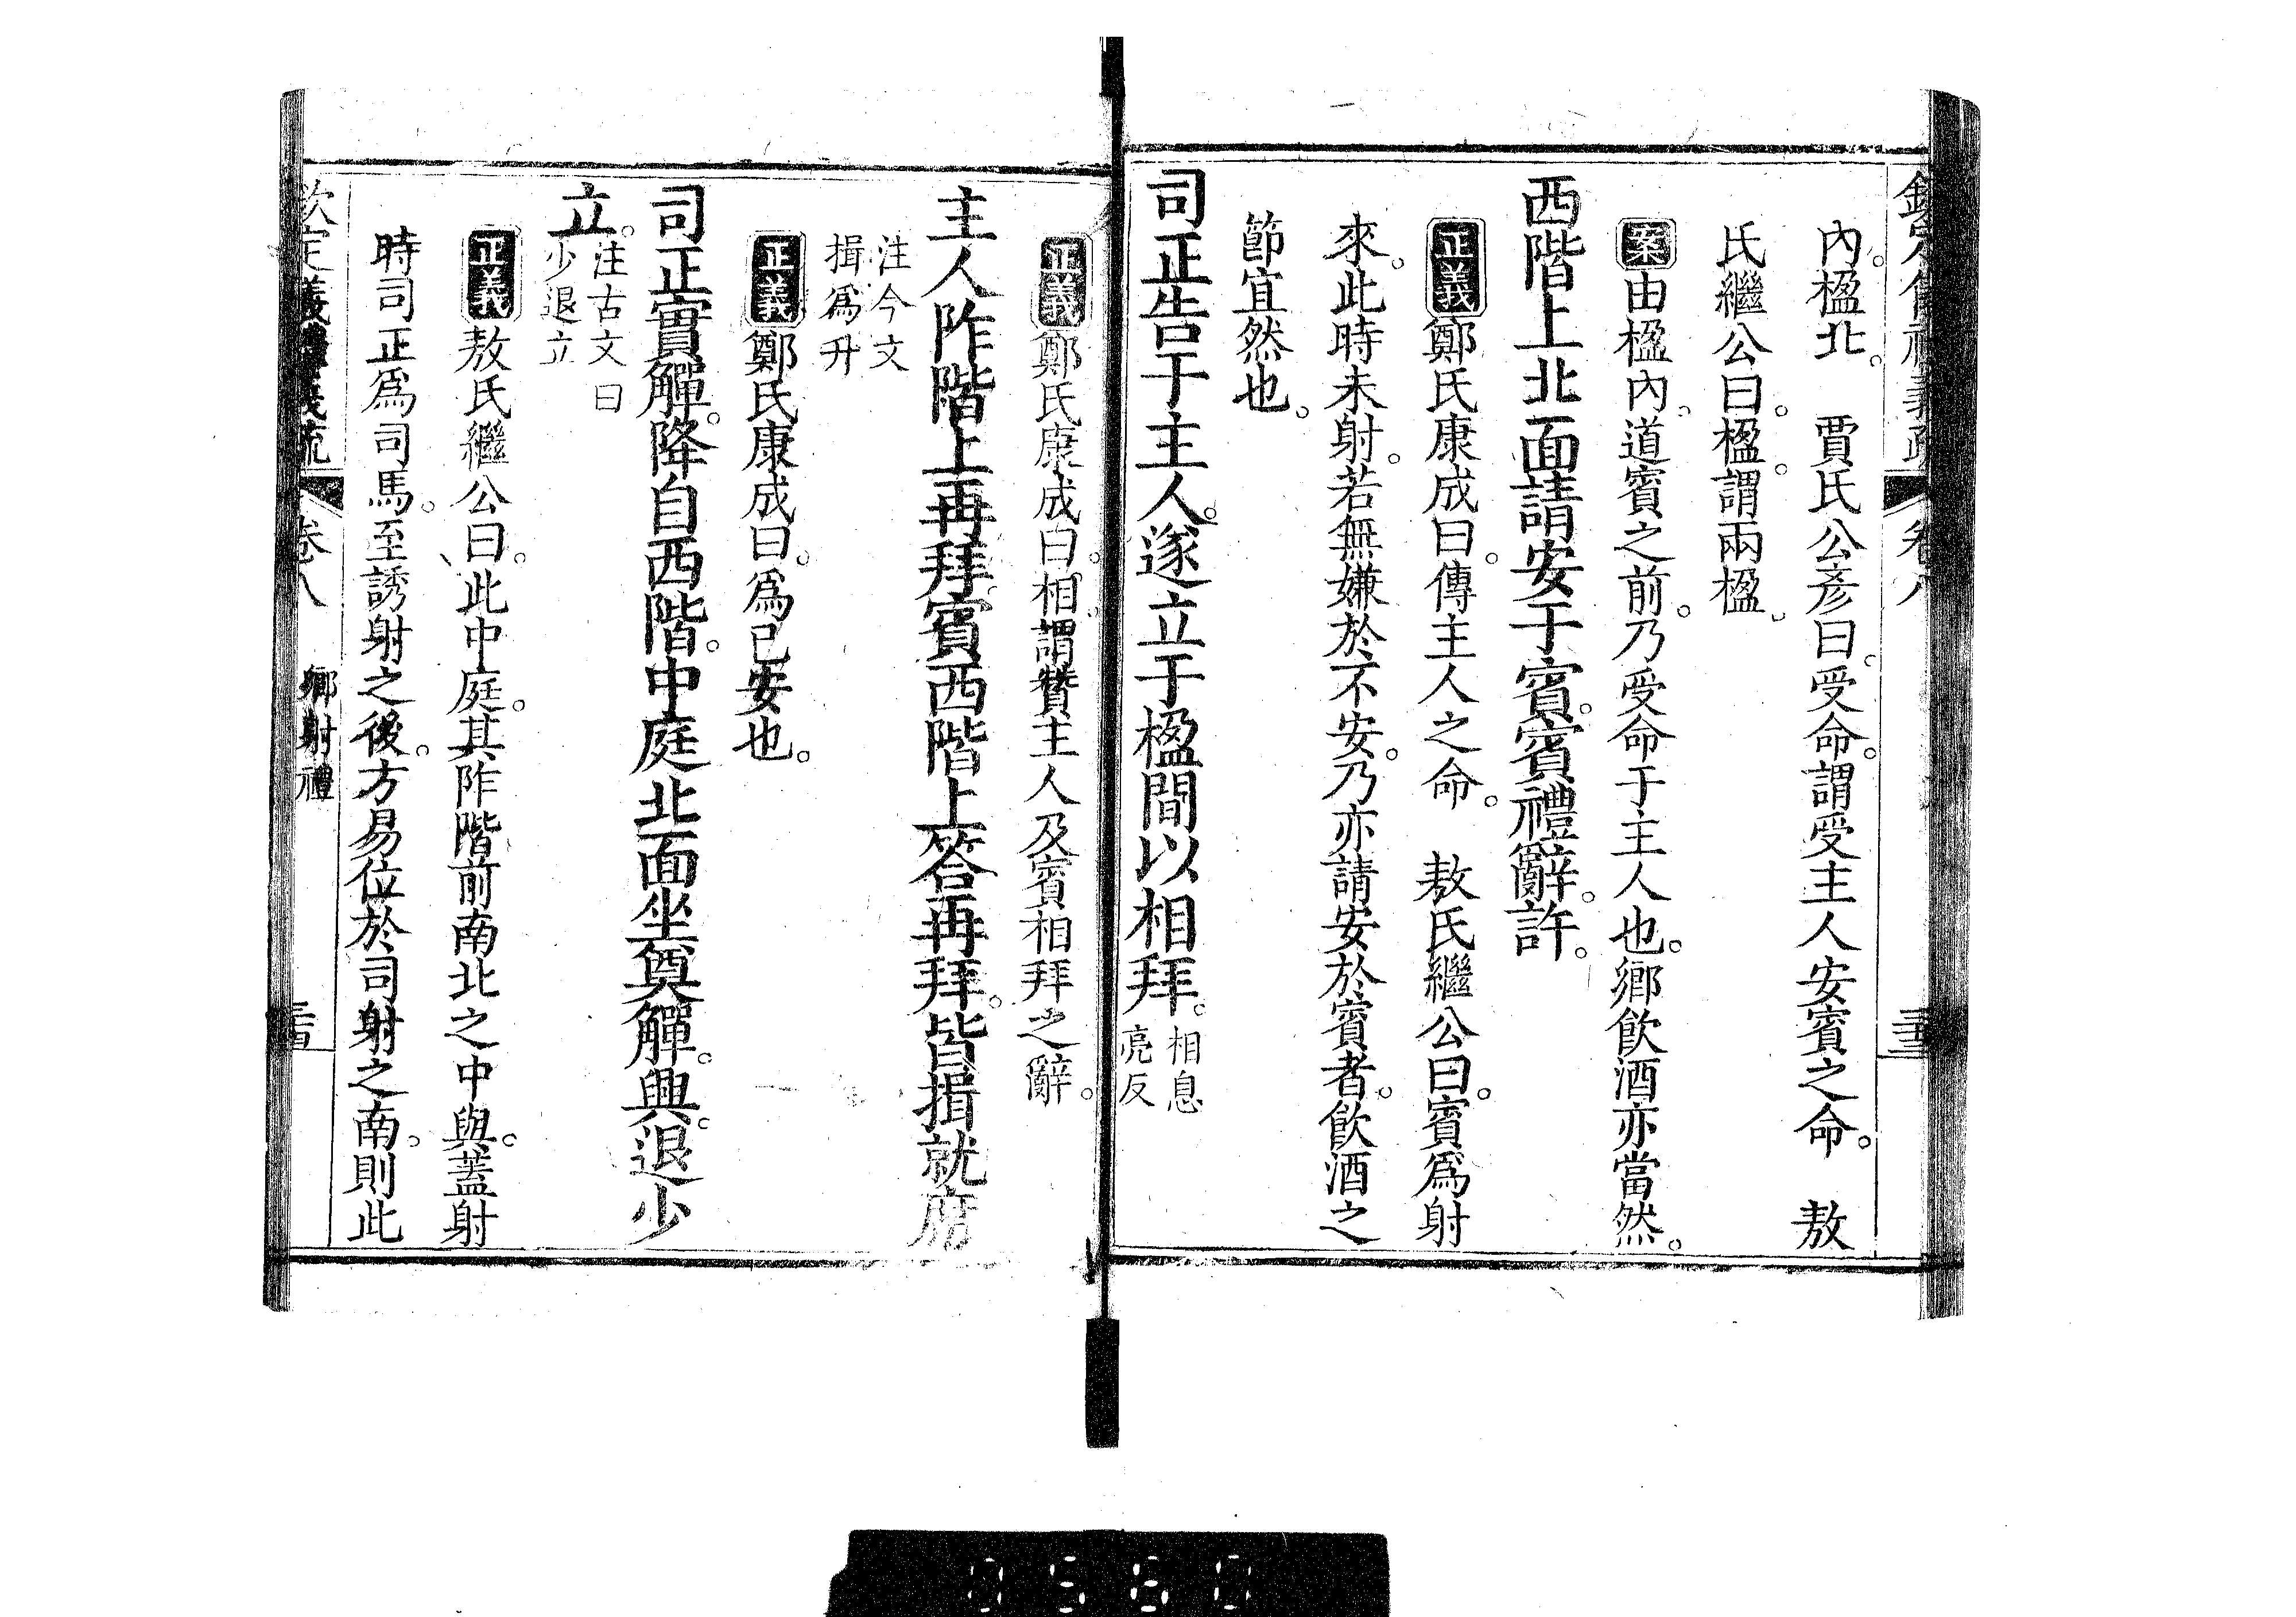 內。楹北。　賈氏公彥曰。受命。謂受主人安賓之命。　敖
氏繼公曰。楹。謂兩楹。
案由楹內。道賓之前。乃受命于主人也。鄉飲酒亦當然。
西階上北面請安于賓。賓禮辭。許。
正義鄭氏康成曰。傳主人之命。　敖氏繼公曰。賓爲射
來。此時未射。若無嫌於不安。乃亦請安於賓者。飲酒之
節宜然也。
司正告于主人。遂立于楹間以相拜。相息
亮反
正義鄭氏康成曰。相。謂贊主人及賓相拜之辭。
主人阼階上再拜。賓西階上答再拜。皆揖就席
注今文
揖爲升
正義鄭氏康成曰。爲已安也。
司正實觶。降自西階。中庭北面坐奠觶。興。退少
立。注古文曰
少退立
正義敖氏繼公曰。此中庭。其阼階前南北之中與。蓋射
時司正爲司馬。至誘射之後。方易位於司射之南。則此
欽定儀禮義疏　卷八　鄉射禮